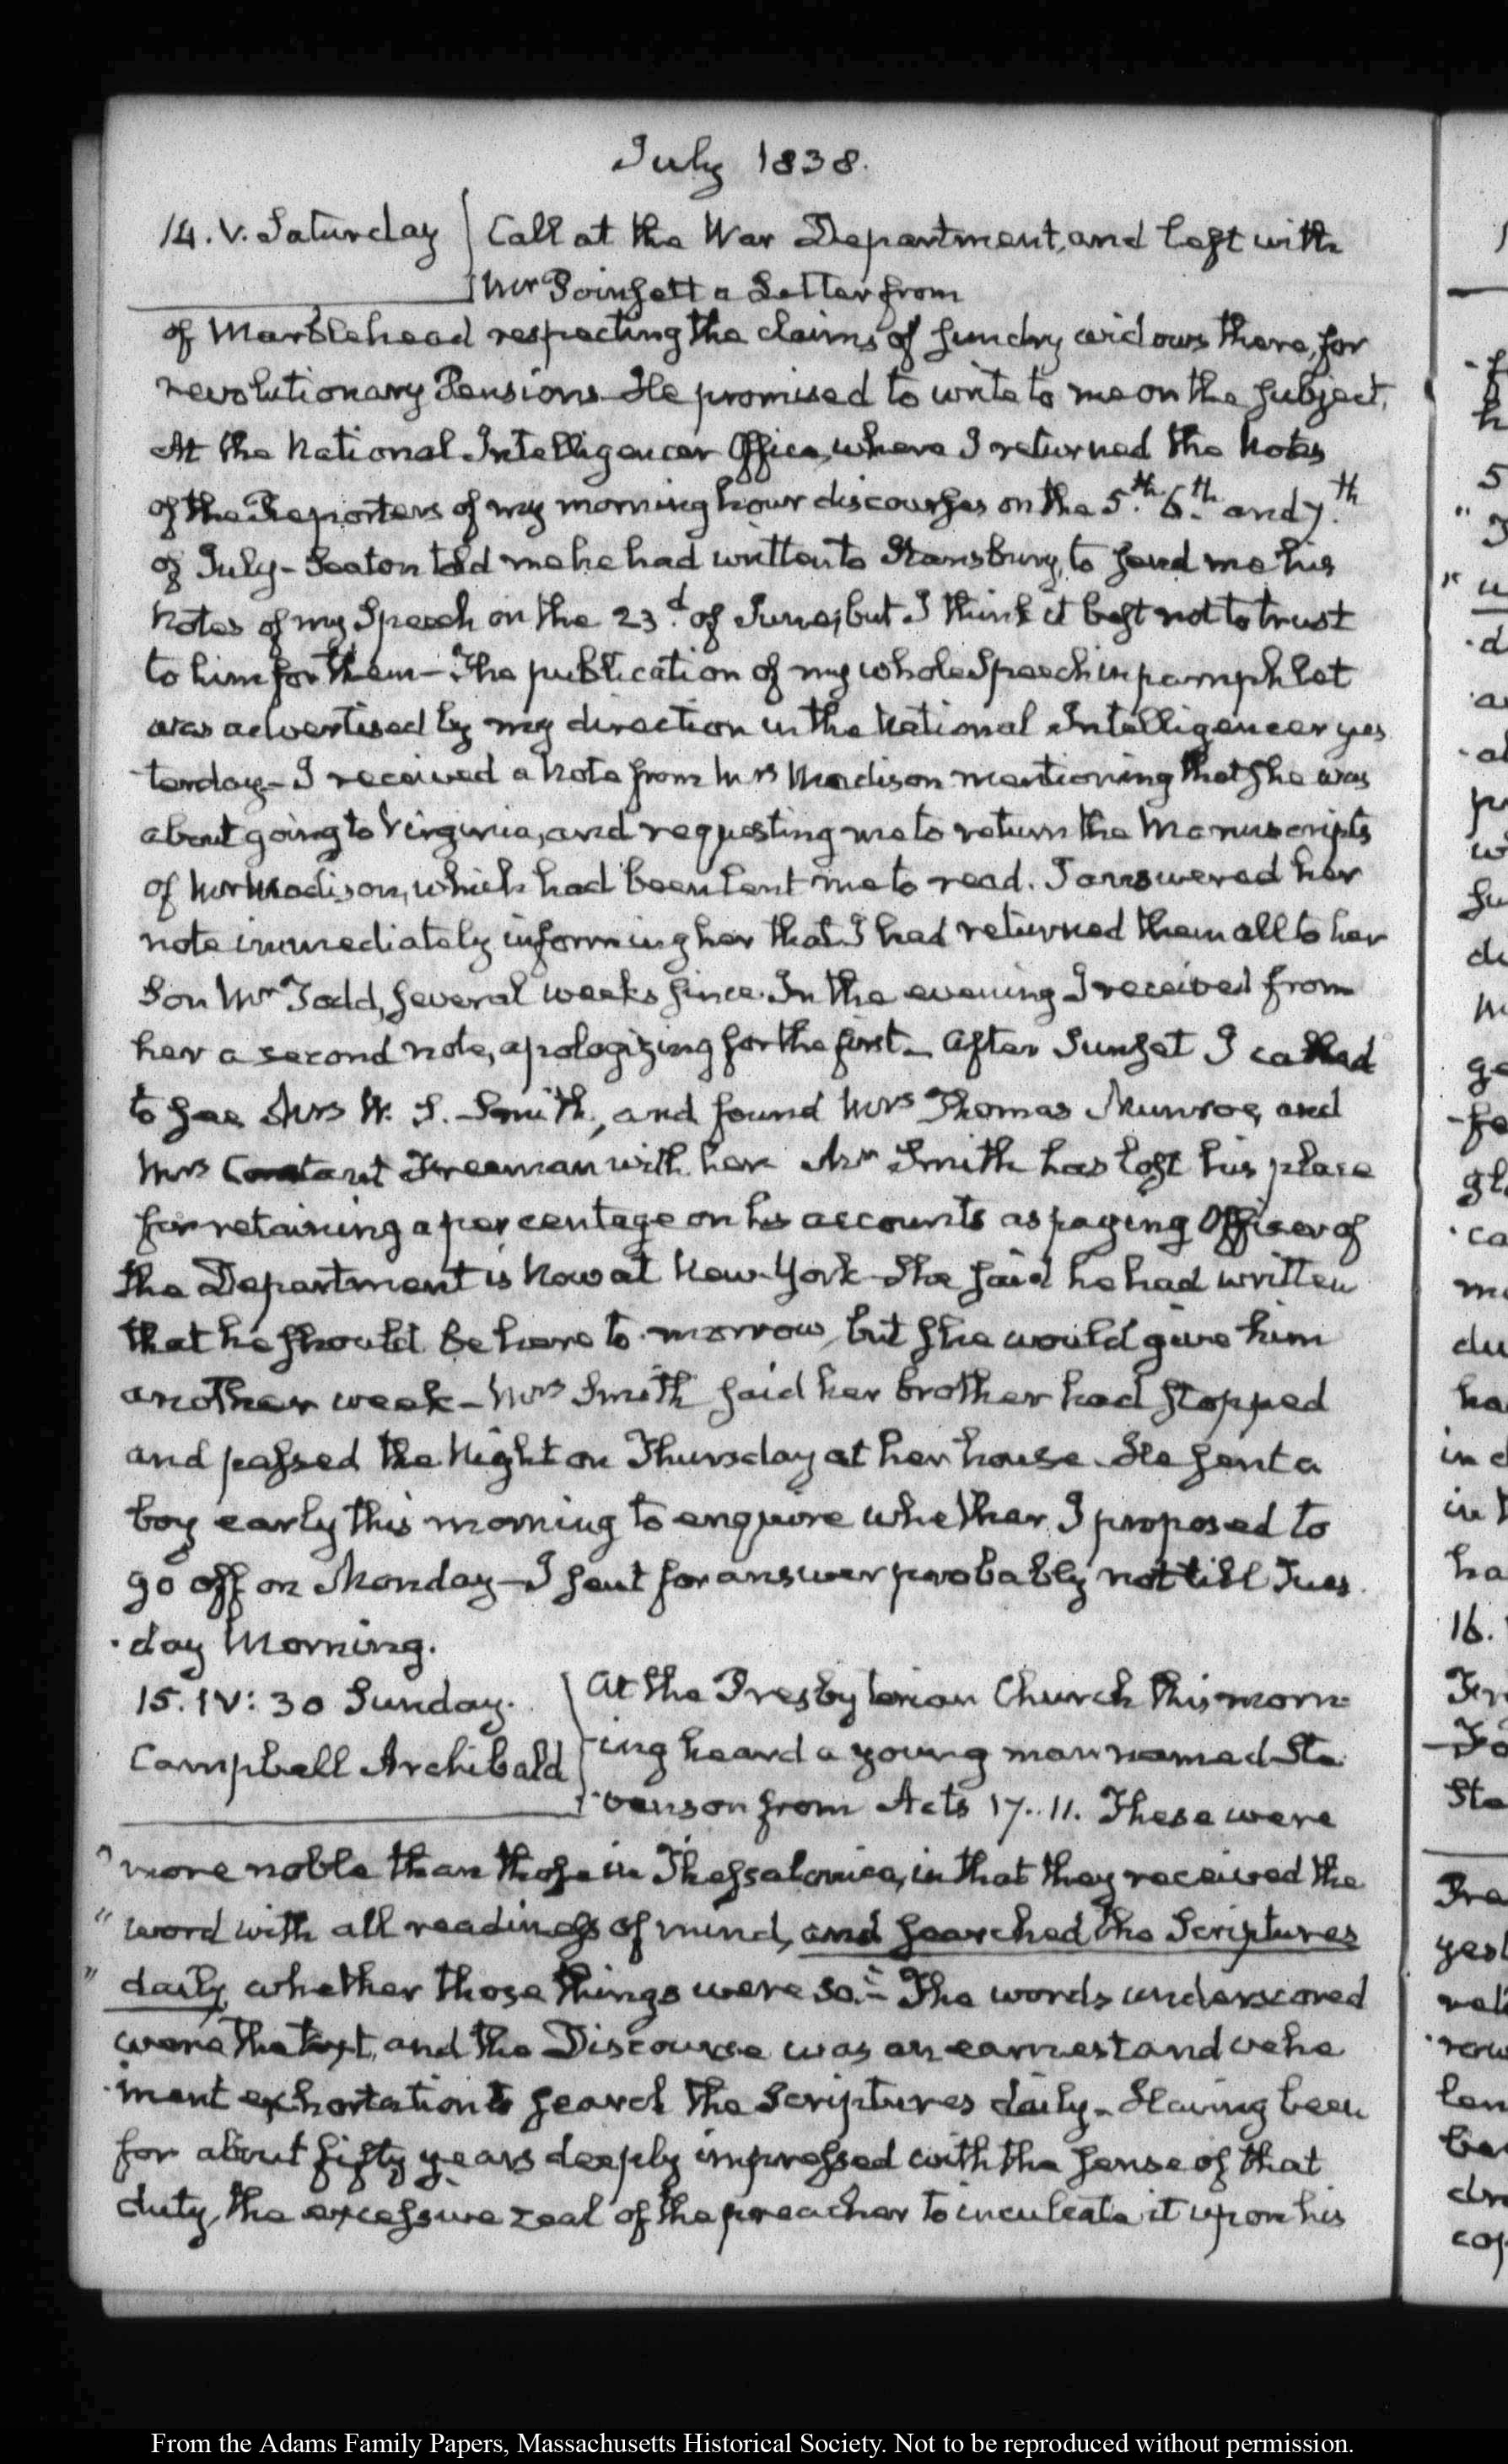 July 1838.
14. V. Saturday
Call at the War Department, and left with
Mr Poinsett a Letter from
of Marblehead respecting the claims of sundry widows there, for
revolutionary Pensions. He promised to write to me on the subject.
At the National Intelligencer Office, where I returned the Notes
of the Reporters of my morning hour discourses on the 5.th 6.th and 7.th
of July— Seaton told me he had written to Stansbury, to send me his
Notes of my Speech on the 23.d of June; but I think it best not to trust
to him for them— The publication of my whole Speech in pamphlet
was advertised by my direction in the National Intelligencer yes
terday— I received a Note from Mrs Madison mentioning that she was
about going to Virginia, and requesting me to return the Manuscripts
of Mr Madison, which had been lent me to read. I answered her
note immediately informing her that I had returned them all to her
Son Mr Todd, several weeks since. In the evening I received from
her a second note, apologizing for the first— After Sunset I called
to see Mrs W. S. Smith, and found Mrs Thomas Munroe, and
Mrs Constant Freeman with her. Mr Smith has lost his place
for retaining a per centage on his accounts as paying Officer of
the Department is Now at New-York— She said he had written
that he should be here to-morrow, but she would give him
another week— Mrs Smith said her brother had stopped
and passed the Night on Thursday at her house. He sent a
boy early this morning to enquire whether I proposed to
go off on Monday— I sent for answer probably not till Tues
-day Morning.
15. IV: 30 Sunday.
Campbell Archibald
At the Presbyterian Church this morn-
-ing heard a young man named Ste
-venson from Acts 17..11. These were
"more noble than those in Thessalonica, in that they received the
"word with all readiness of mind, and searched the Scriptures
"daily, whether those things were so."— The words underscored
were the text, and the Discourse was an earnest and vehe
-ment exhortation to search the Scriptures daily— Having been
for about fifty years deeply impressed with the sense of that
duty, the excessive zeal of the preacher to inculcate it upon his
From the Adams Family Papers, Massachusetts Historical Society. Not to be reproduced without permission.